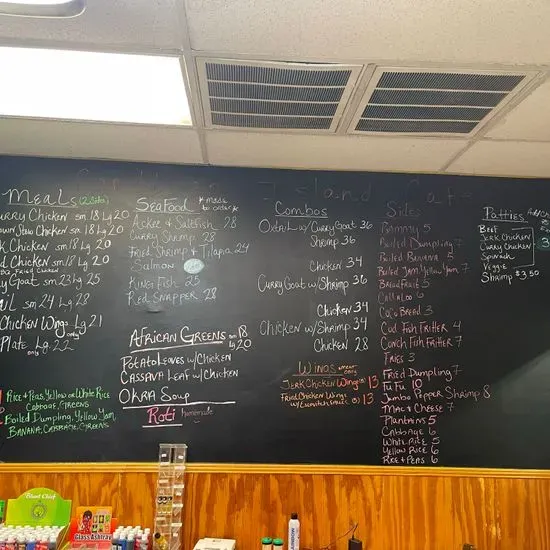 MEALS (2 Sides)
Curry Chicken sm.18 Lg 20
Brown Stew Chicken sm.18 Lg 20
k Chicken sm.18 Lg 20
d Chicken sm.18 Lg 20
Goat sm 23 Lg 25
L sm 24 Lg 28
Chicken Wings only Lg 21
Plate only Lg. 22
Rice + Peas, Yellow or White Rice
Cabbage, Greens
Boiled Dumpling, Yellow Yam,
Banana, Cabbage, Greens
SEAFOOD * Made to order *
Ackee & Saltfish 28
Curry Shrimp 28
Fried Shrimp + Tilapia 24
Salmon
King Fish 25
Red Snapper 28
AFRICAN GREENS sm 18 Lg 20
Potato Leaves w/Chicken
Cassava Leaf w/Chicken
Okra Soup
Roti homemade
Combos
Oxtail w/ Curry Goat 36
Shrimp 36
Chicken 34
Curry Goat w/ Shrimp 36
Chicken 34
Chicken w/Shrimp 34
Chicken 28
WINGS
Jerk Chicken Wings 13
Fried Chicken Wings 13
Sides
Bammy 5
Boiled Dumpling 7
Boiled Banana 5
Boiled Yam, Yellow Yam 7
Breadfruit 5
Callaloo 6
Coco Bread 3
Cod Fish Fritter 4
Conch Fish Fritter 7
Fries 3
Fried Dumpling 7
Fu Fu 10
Jumbo Pepper Shrimp 8
Mac & Cheese 7
Plantains 5
Cabbage 6
White Rice 5
Yellow Rice 6
Rice + Peas 6
Patties
Beef
Jerk Chicken
Curry Chicken
Spinach
Veggie
Shrimp $3.50
Blunt Chief
Glass Ashtray